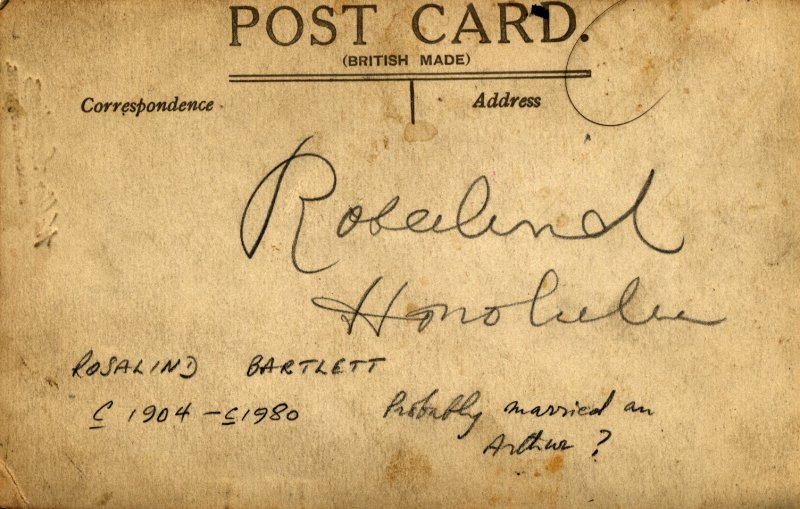 POST CARD.
(BRITISH MADE)
Correspondence Address
Rosalind
Honolulu
ROSALIND BARTLETT
c 1904 - c 1980 Probably married an
Arthur ?